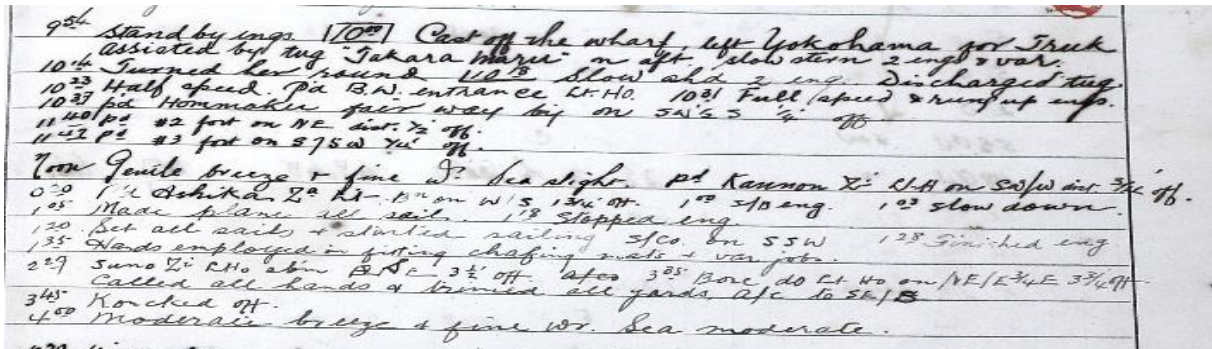 9.54 Stand by engs. 10.00 Cast off the wharf, left Yokohama for Truk
assisted by tug "Takara Maru" on aft. slow stern 2 engs & var.
10.14 Turned her round 10.18 Slow ahd 2 eng. Discharged tug.
10.23 Half speed. P'd B.W. entrance Lt. Ho. 10.31 Full speed & rung up engs.
10.37 pd Hommaker fair way by on SW½S ¼' off
11.40 pd #2 fort on NE dist. ½' off.
11.47 pd #3 fort on S75W ¼' off.
Noon Gentle breeze & fine Wr. Sea slight. pd Kannon Zi Lt-H on SW/W dist. ¾' off.
Ashika Za Lt- Bn on W'S 1¾' off. 1.00 S/B eng. 1.03 slow down.
1.05 Made plane all sails. 1.18 Stopped eng.
1.20 Set all sails & started sailing S/Co. on SSW 1.28 Finished eng
1.35 Hands employed in fitting chafing mats & var jobs.
2.27 Suno Zi LHo abm 3½' off. 3.35 Bore do Lt Ho on NE/E¾E 3¾' off
Called all hands & trimed all yards, a/c to SE/S
3.45 Koncked off.
4.00 Moderate breeze & fine wr. Sea moderate.